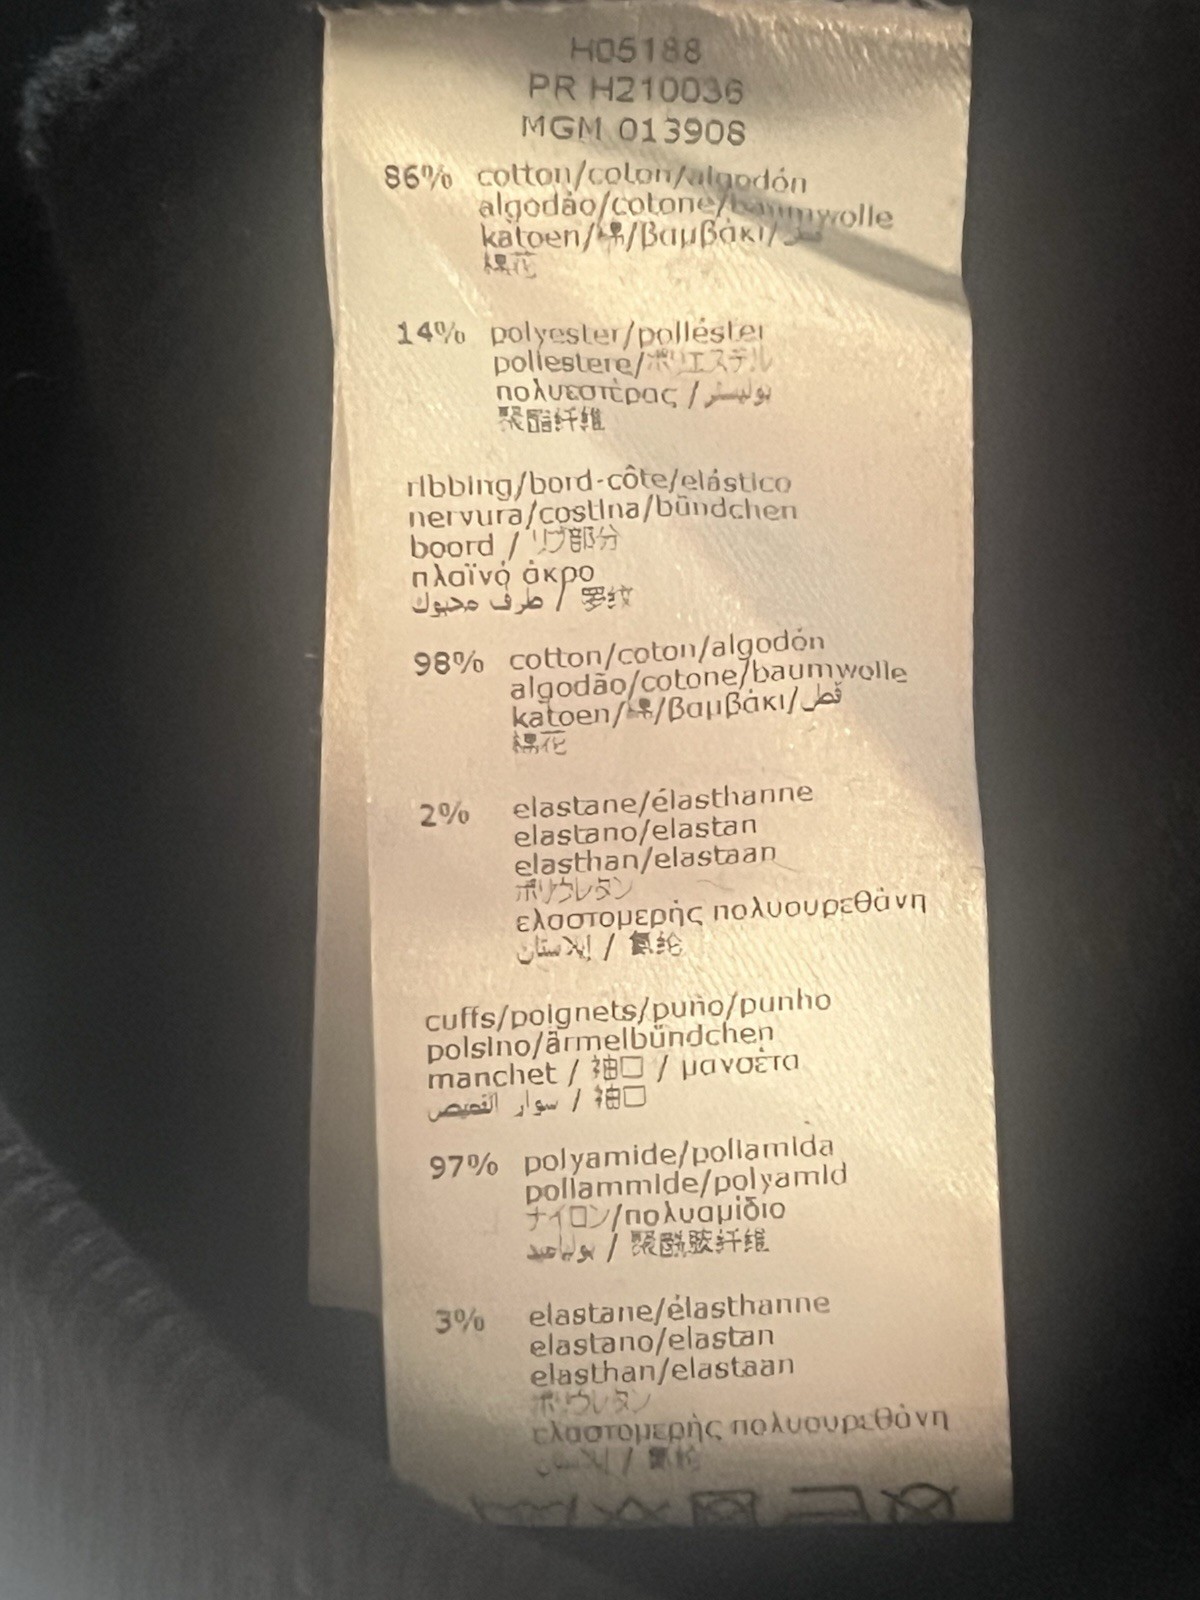 H05188
PR H210036
MGM 013908
86% cotton/coton/algodón
algodão/cotone/baumwolle
katoen/綿/βαμβάκι/قطن
棉花
14% polyester/poliéster
poliestere/ポリエステル
πολυεστέρας / بوليستر
聚酯纤维
ribbing/bord-côte/elástico
nervura/costina/bündchen
boord / リブ部分
πλαϊνό άκρο
طرف محبوك / 罗纹
98% cotton/coton/algodón
algodão/cotone/baumwolle
katoen/綿/βαμβάκι/قطن
棉花
2% elastane/élasthanne
elastano/elastan
elasthan/elastaan
ポリウレタン
ελαστομερής πολυουρεθάνη
إيلاستان / 氨纶
cuffs/poignets/puño/punho
polsino/ärmelbündchen
manchet / 袖口 / μανσέτα
سوار القميص / 袖口
97% polyamide/poliamida
poliammide/polyamid
ナイロン/πολυαμίδιο
بولياميد / 聚酰胺纤维
3% elastane/élasthanne
elastano/elastan
elasthan/elastaan
ポリウレタン
ελαστομερής πολυουρεθάνη
إيلاستان / 氨纶